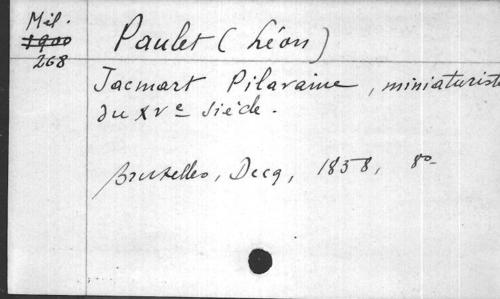 Mil.
1900
268
Paulet (Léon)
Jacmart Pilavaine, miniaturiste
du XVe siècle.
Bruxelles, Decq, 1858, 8o